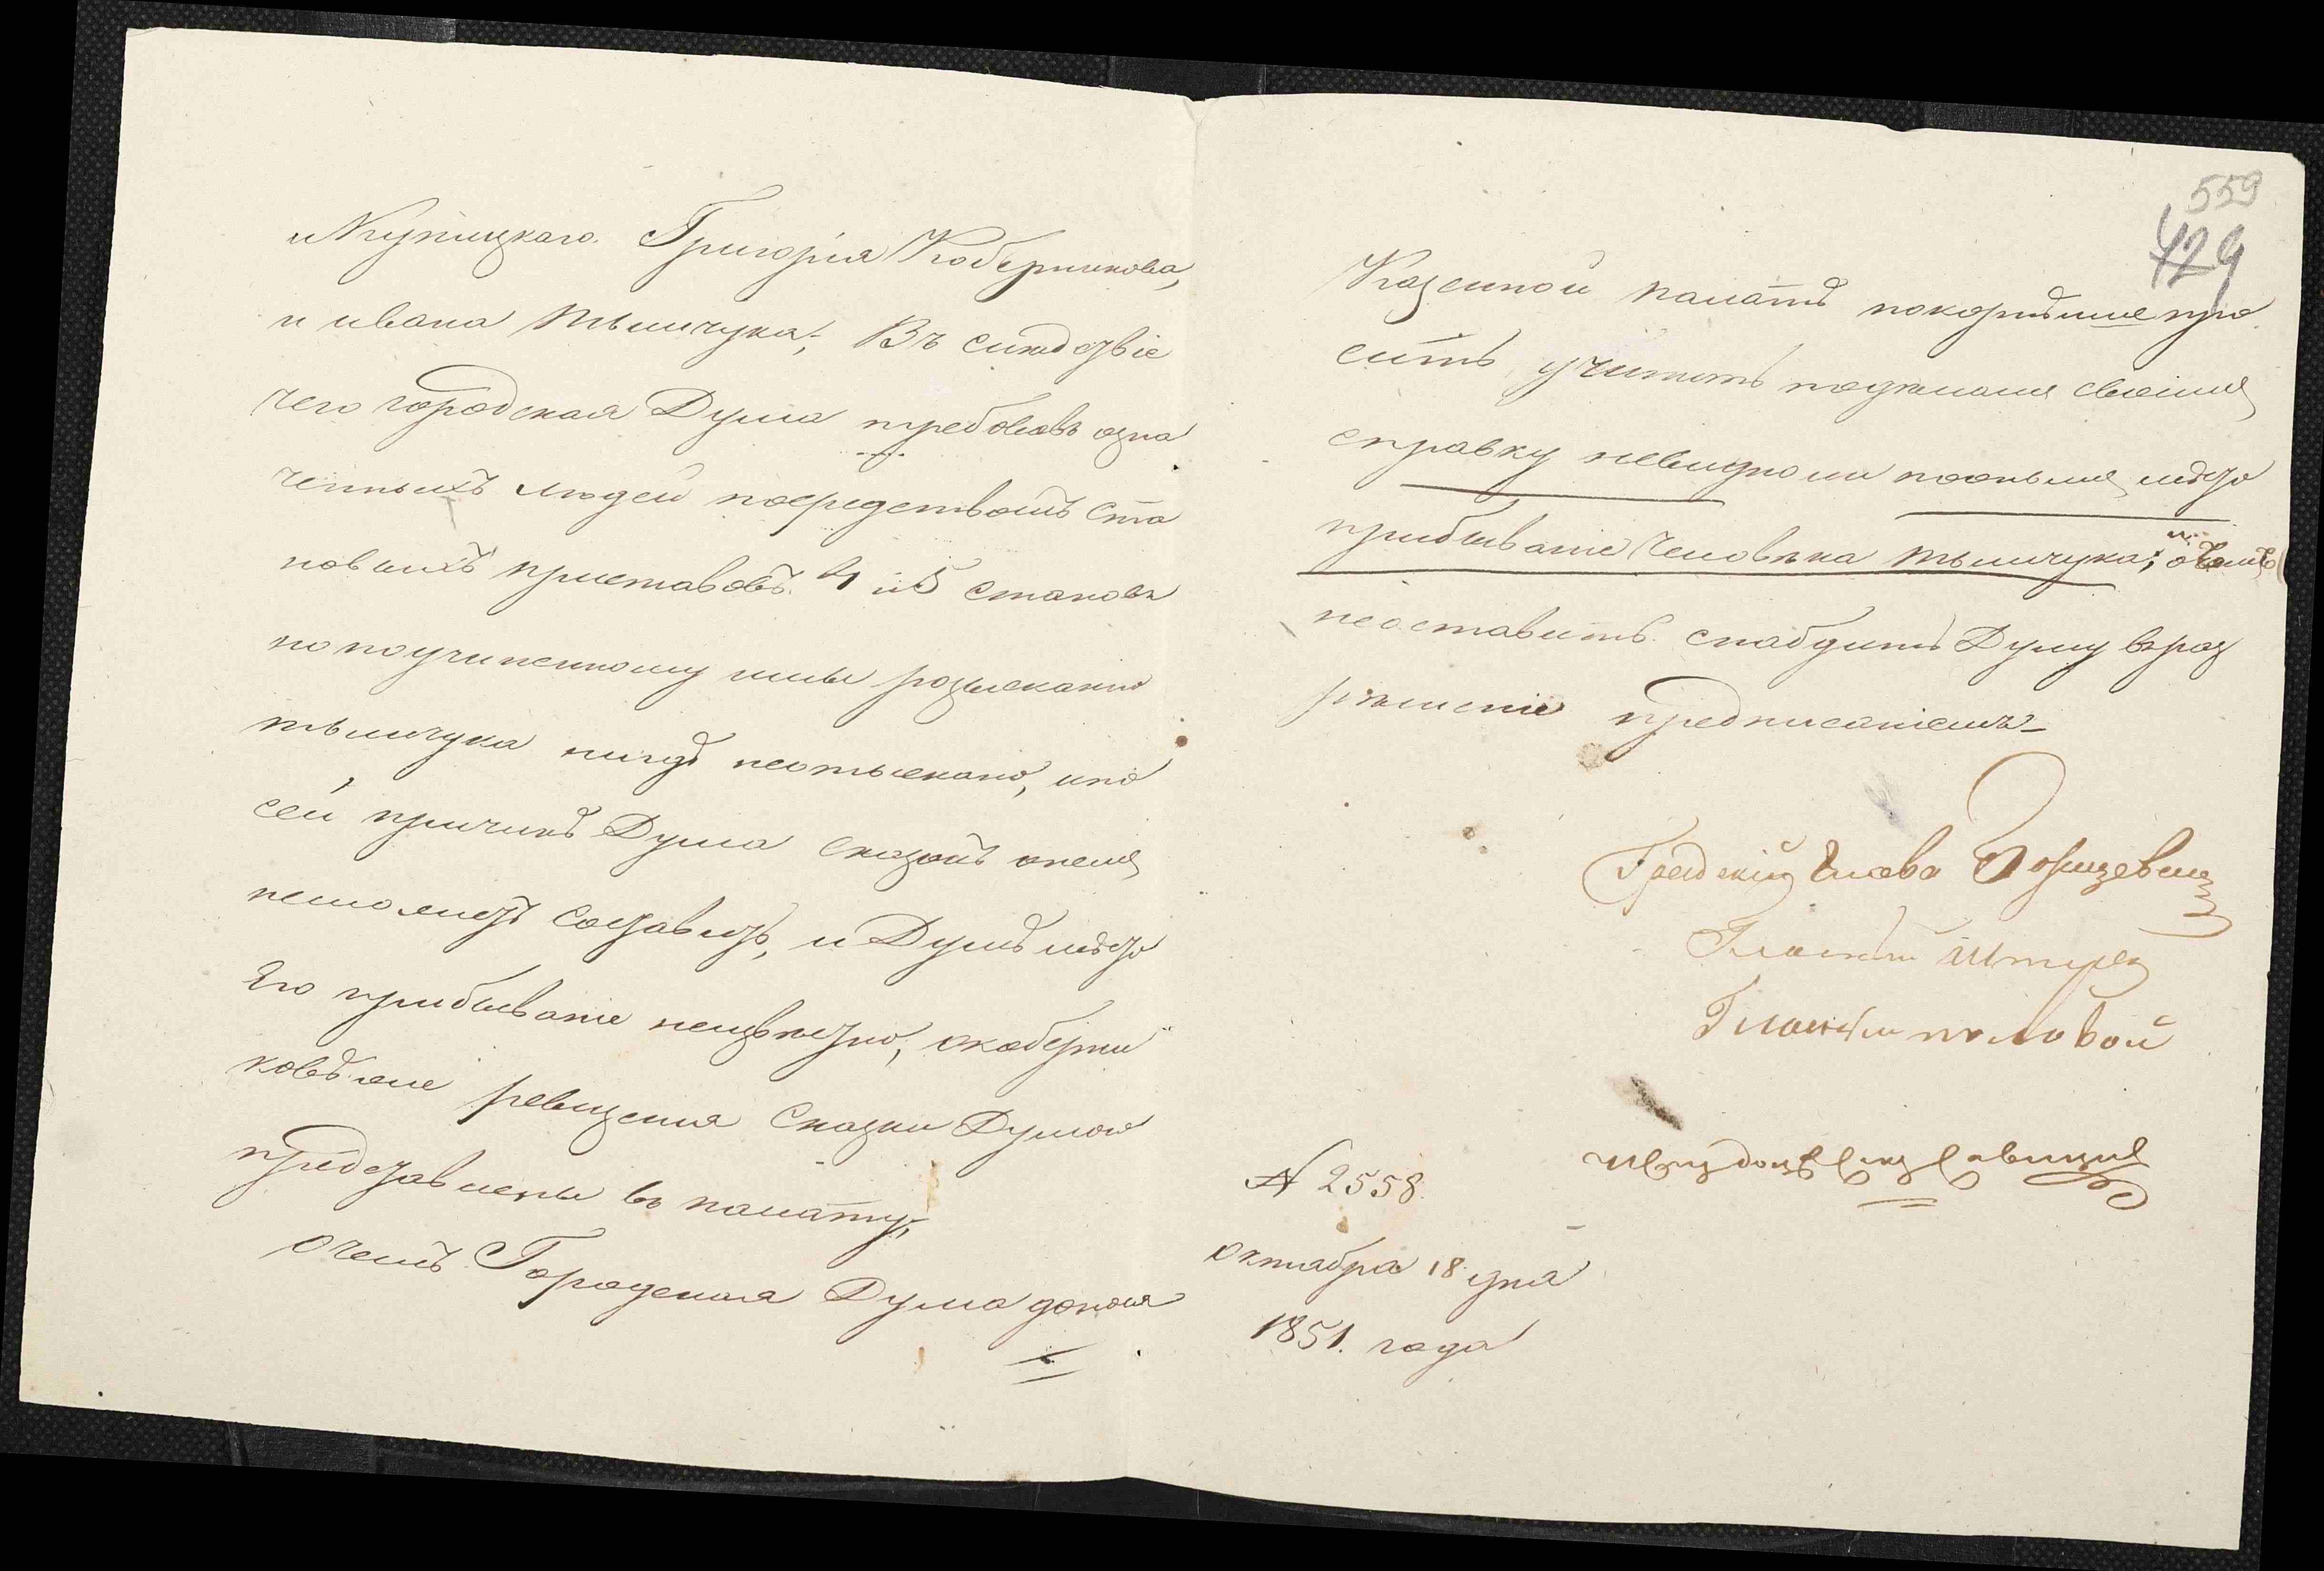 и Купицкаго Григорія Коберникова,
и ивана тымчука; Въ слѣдствіе
чего городская Дума требовавъ озна
ченныхъ людей посредствомъ Ста
новыхъ приставовъ 4 и 5 становъ
но по учиненному ими розысканію
тымчука нигдѣ неотысканно, и по
сей причинѣ Дума сказокъ онемъ
неможетъ составить, и Думѣ мѣсто
Его прибываніе неизвѣстно, окоберни
ковѣ же ревизския Сказки Думою
представлены въ палату,
очемъ Городская Дума донося
559
429
Казенной палатѣ покорнѣйше про
ситъ учинить подѣламъ своимъ
справку невидно ли поонымъ мѣсто
прибываніе человѣка тымчука; и очемъ
неоставить снабдить Думу въ раз
рѣшеніе предписаніемъ
Градский Глава
Гласный
Гласный половой
№ 2558.
октября 18 дня
1851. года